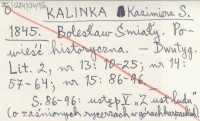 KALINKA Kazimierz S.
1845. Bolesław Śmiały. Po-
wieść historyczna. – Dwutyg.
Lit. 2, nr 13: 10-25; nr 14:
57-64; nr 15: 86-96.
S. 86-96: ustęp V „Z ust ludu"
(o zaśnionych rycerzach w górach karpackich)